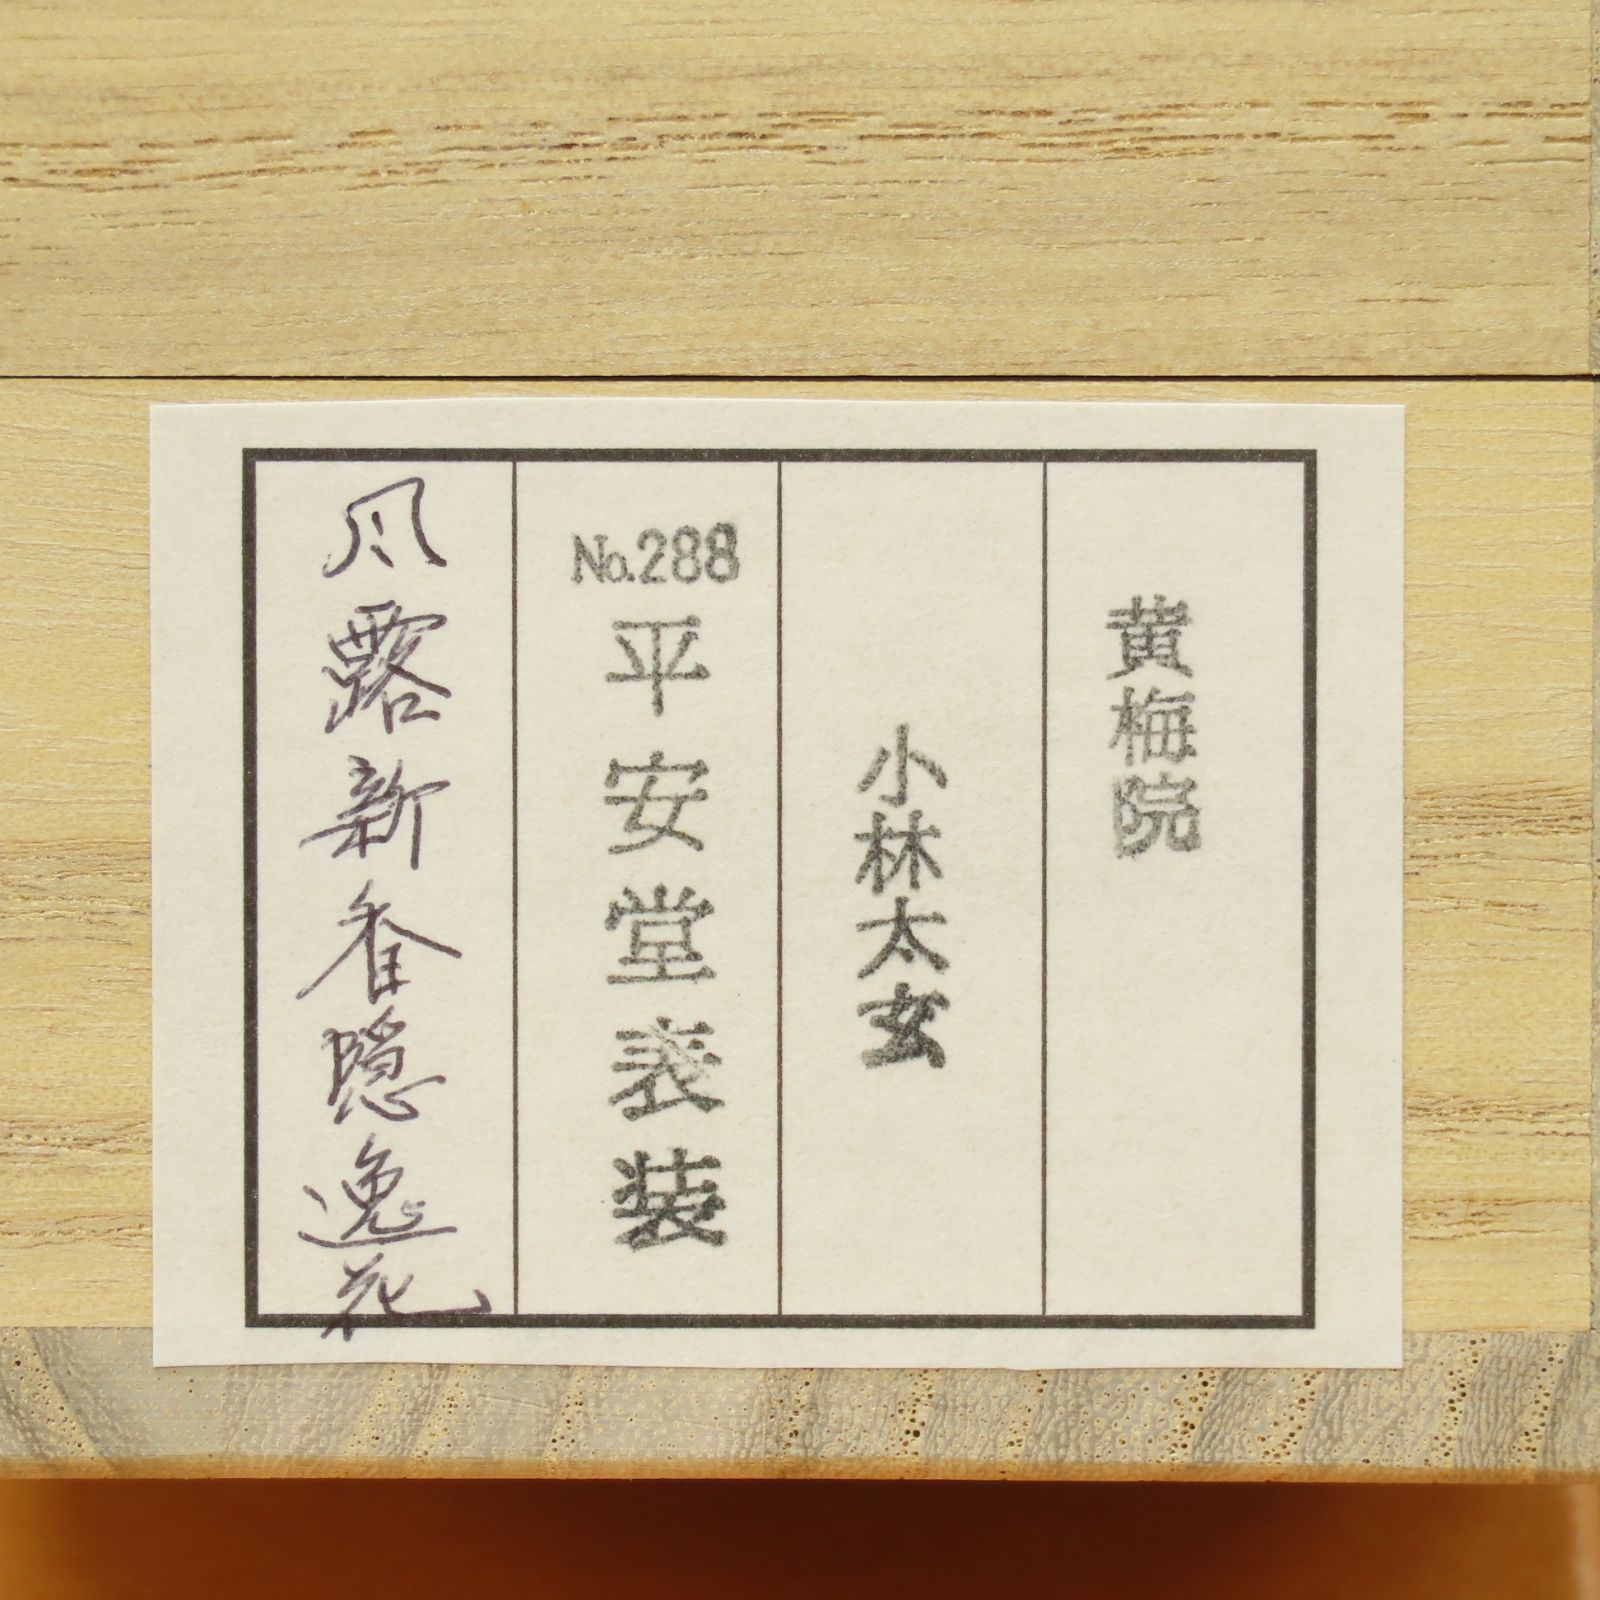 黄梅院
小林太玄
No.288
平安堂表装
風露新香隠逸花